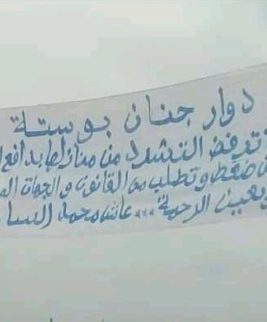 دوار جنان بوستة
ترفض التشرد من منازلها بدافع
ضغط وتطلب من القانون والجهات
بعين الرحمة عاش محمد السا